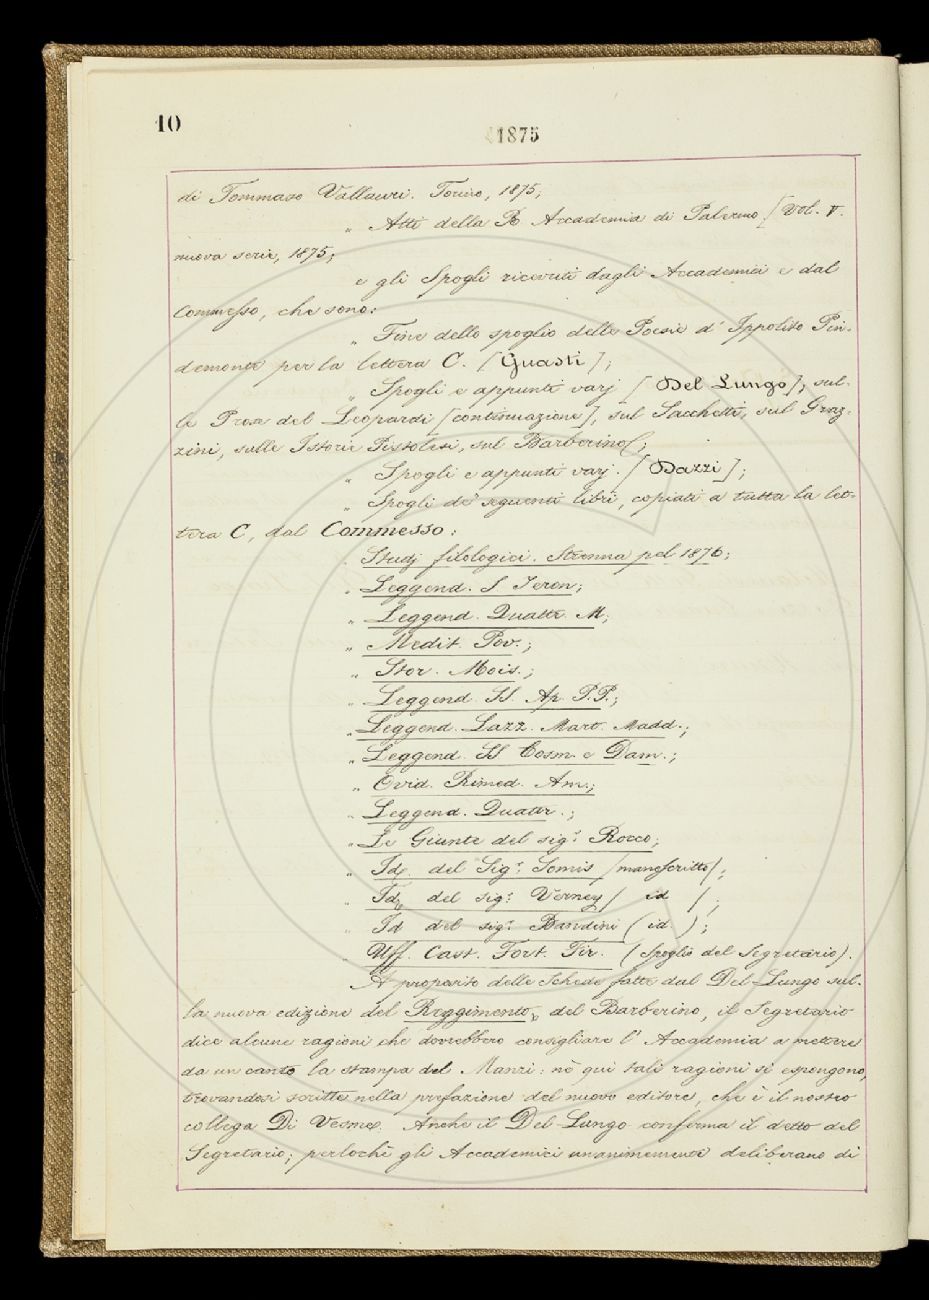 10
1875
di Tommaso Vallauri. Torino, 1875;
„ Atti della R. Accademia di Palermo [Vol. V.
nuova serie, 1875;
e gli Spogli ricevuti dagli Accademici e dal
Commesso, che sono:
„ Fine dello spoglio delle Poesie d' Ippolito Pin-
demonte per la lettera C. [Guasti];
„ Spogli e appunti varj [Del Lungo], sul-
le Prose del Leopardi [continuazione], sul Sacchetti, sul Graz-
zini, sulle Istorie Pistolesi, sul Barberino;
„ Spogli e appunti varj. [Dazzi];
„ Spogli de' seguenti libri, copiati a tutta la let-
tera C, dal Commesso:
„ Studj filologici. Strenna pel 1876;
„ Leggend. S Jeron;
„ Leggend. Quattr. M;
„ Medit. Pov.;
„ Stor. Mois.;
„ Leggend. SS. Ap. P.P.;
„ Leggend. Lazz. Mart. Madd.;
„ Leggend. SS Cosm. e Dam.;
„ Ovid. Rimed. Am.;
„ Leggend. Quattr.;
„ Le Giunte del sig.r Rocco;
„ Id. del Sig.r Somis /manoscritto/;
„ Id. del sig.r Verney / id /;
„ Id del sig.r Bandini (id.);
„ Uff. Cast. Fort. Fir. (Spoglio del Segretario).
A proposito delle Schede fatte dal Del-Lungo sul-
la nuova edizione del Reggimento, del Barberino, il Segretario
dice alcune ragioni che dovrebbero consigliare l' Accademia a mettere
da un canto la stampa del Manzi: nè qui tali ragioni si espongono,
trovandosi scritte nella prefazione del nuovo editore, che è il nostro
collega Di Vesme. Anche il Del-Lungo conferma il detto del
Segretario; perlochè gli Accademici unanimemente deliberano di